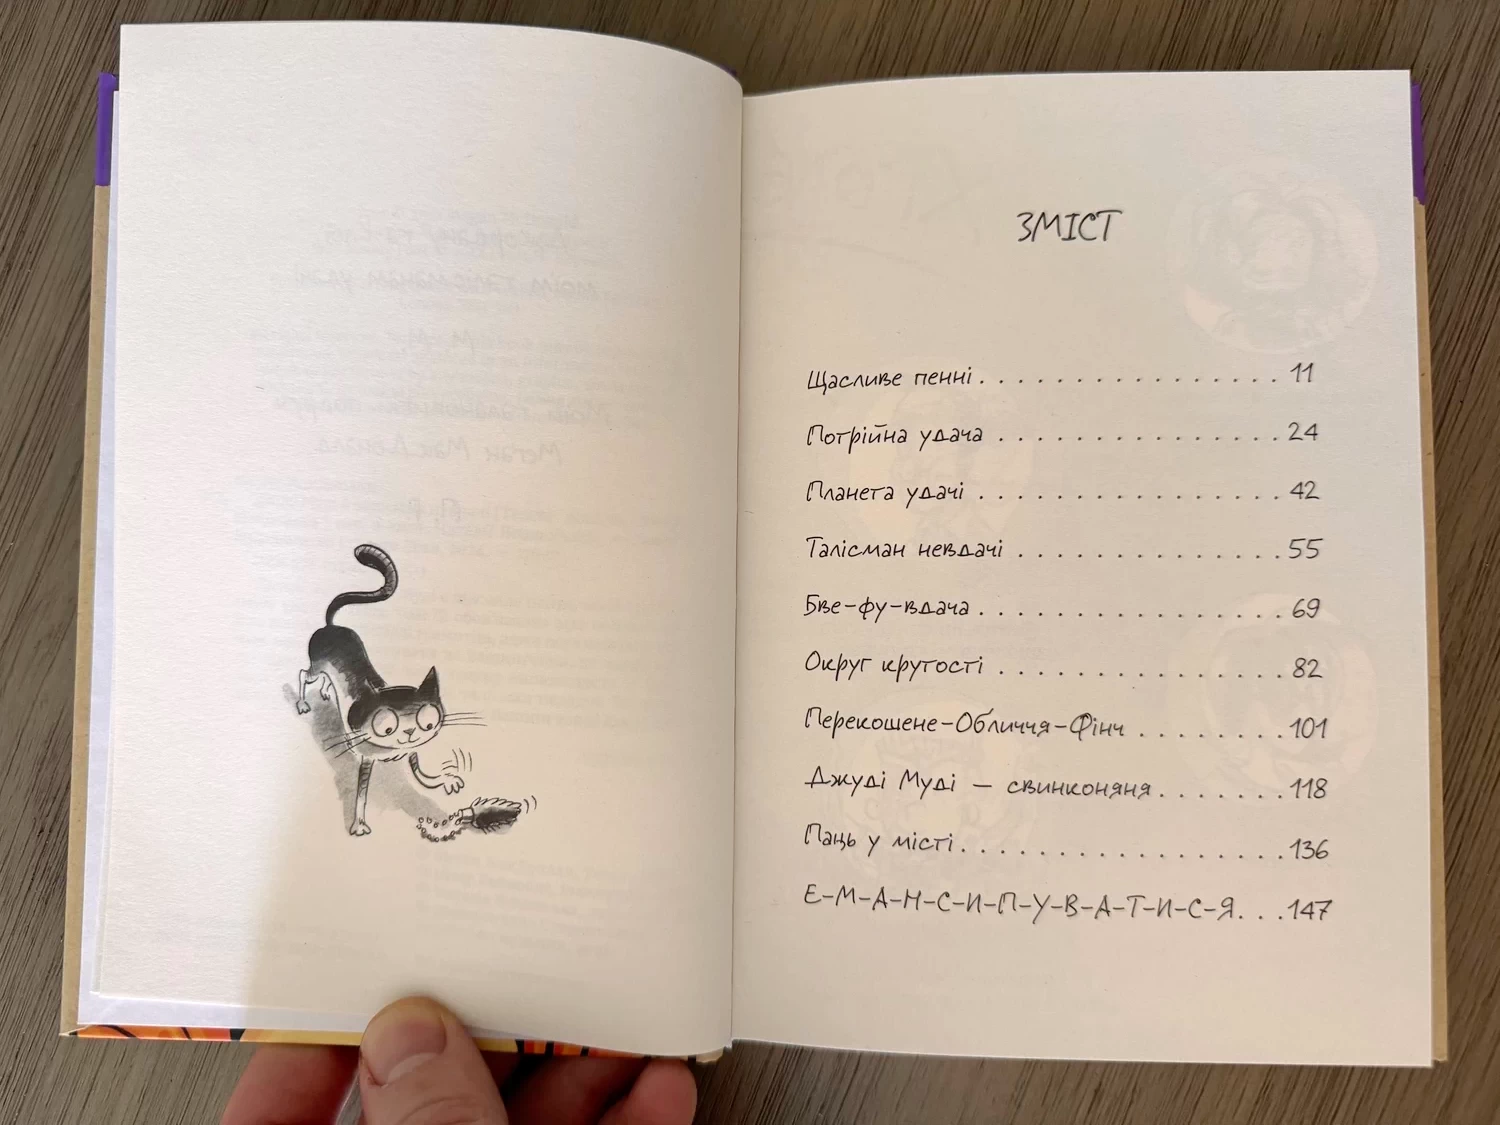 ЗМІСТ
Щасливе пенні. . . . . . . . . . . . . . . . 11
Потрійна удача . . . . . . . . . . . . . . . 24
Планета удачі . . . . . . . . . . . . . . . . 42
Талісман невдачі . . . . . . . . . . . . . . 55
Бве-фу-вдача . . . . . . . . . . . . . . . . 69
Округ крутості . . . . . . . . . . . . . . . 82
Перекошене-Обличчя-Фінч . . . . . . . . 101
Джуді Муді — свинконяня. . . . . . . 118
Паць у місті. . . . . . . . . . . . . . . . . 136
Е-М-А-Н-С-И-П-У-В-А-Т-И-С-Я. . . 147